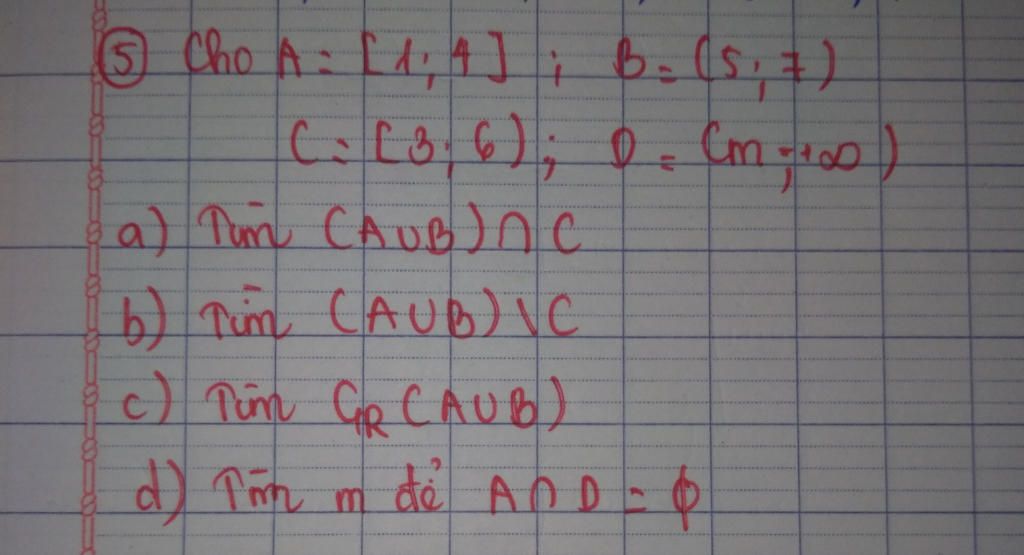 ⑤ Cho A = [1; 4] ; B = (5; 7)
C = [3; 6) ; D = (m; +∞)
a) Tìm (A∪B)∩C
b) Tìm (A∪B)\C
c) Tìm Cℝ(A∪B)
d) Tìm m để A∩D = ϕ